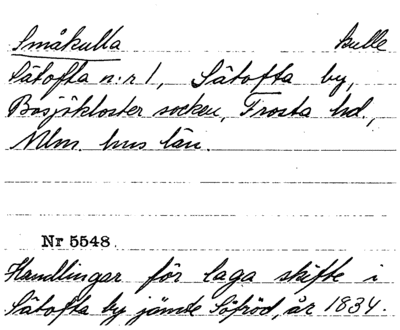 Småkulla kulle
Sätofta n:r 1, Sätofta by,
Bosjökloster socken, Frosta hd.,
Mlm. hus län.
Nr 5548.
Handlingar för laga skifte i
Sätofta by jämte Söfröd, år 1834.